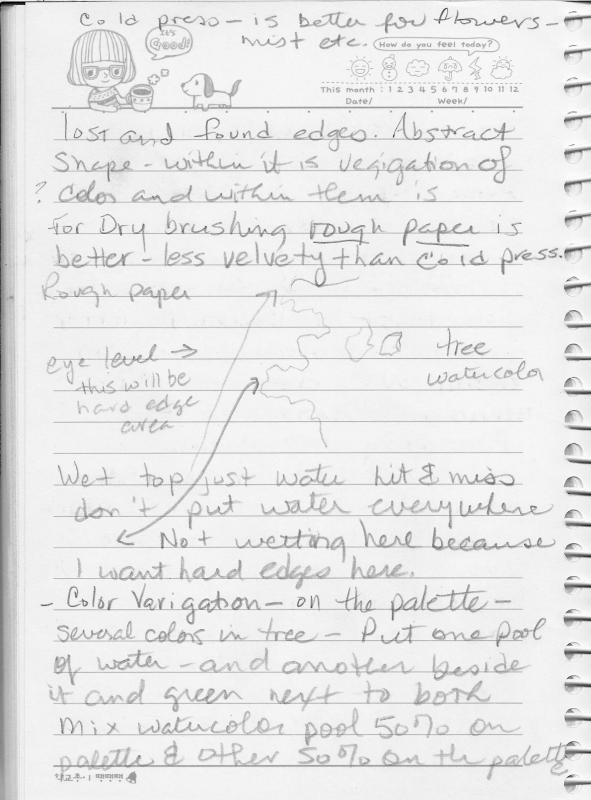 Cold press - is better for flowers -
mist etc.
It's Good!
How do you feel today?
This month : 1 2 3 4 5 6 7 8 9 10 11 12
Date/ Week/
lost and found edges. Abstract
Shape - within it is vegigation of
? color and within them is
For Dry brushing rough paper is
better - less velvety than cold press.
Rough paper
eye level →
this will be
hard edge
area
tree
watercolor
Wet top just water hit & miss
don't put water everywhere
← Not wetting here because
I want hard edges here.
- Color Varigation - on the palette -
several colors in tree - Put one pool
of water - and another beside
it and green next to both
Mix watercolor pool 50% on
palette & other 50% on the palette